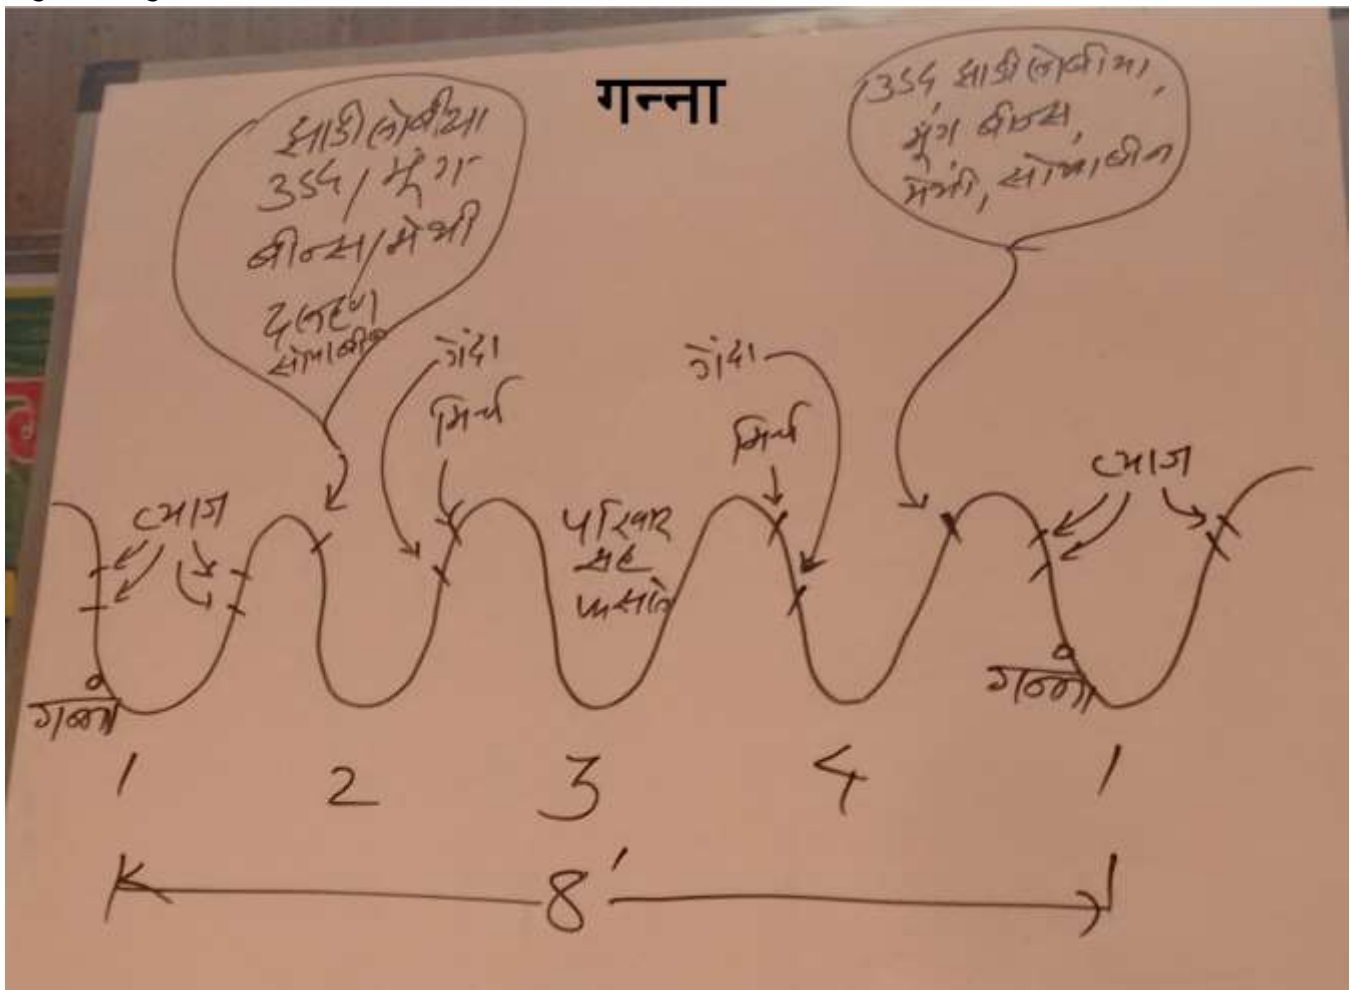 गन्ना
झाडी लोबीया
उडद/मूंग
बीन्स/मेथी
दलहण
सोयाबीन
उडद झाडी लोबीया,
मूंग बीन्स,
मेथी, सोयाबीन
गेंदा
मिर्च
गेंदा
मिर्च
प्याज
परिवार
सह
प्याज
गन्ना
गन्ना
1 2 3 4 1
8'